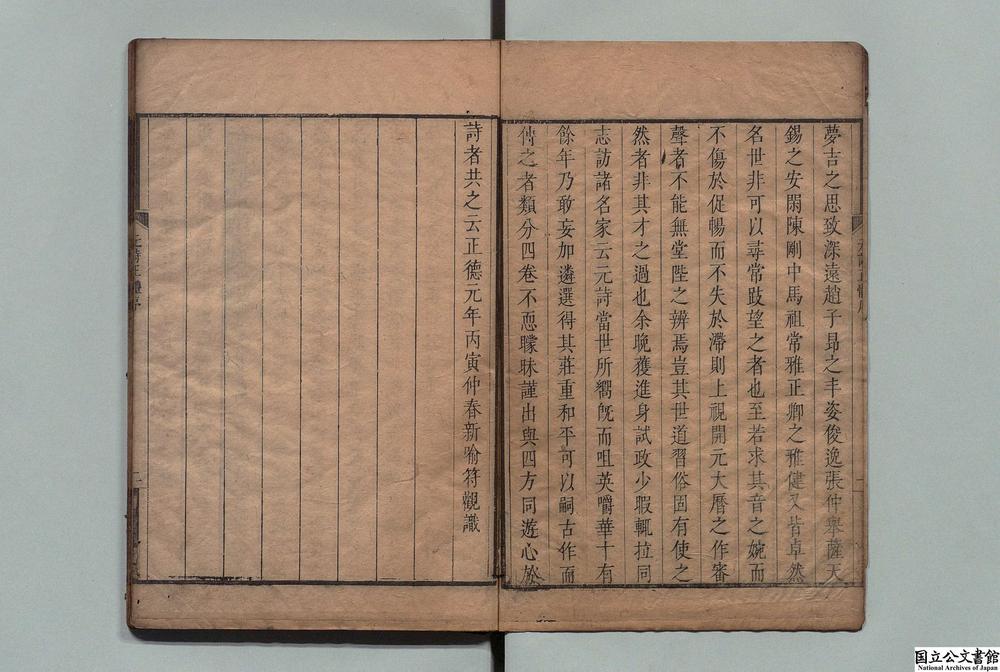 夢吉之思致深遠趙子昻之丰姿俊逸張仲舉薩天
錫之安閑陳剛中馬祖常雅正卿之雅健又皆卓然
名世非可以尋常跂望之者也至若求其音之婉而
不傷於促暢而不失於滯則上視開元大曆之作審
聲者不能無堂陛之辨焉豈其世道習俗固有使之
然者非其才之過也余晚獲進身試政少暇輒拉同
志訪諸名家云元詩當世所嚮旣而咀英嚼華十有
餘年乃敢妄加遴選得其莊重和平可以嗣古作而
傳之者類分四卷不恧矇昧謹出與四方同遊心於
詩者共之云正德元年丙寅仲春新喻符觀識
元詩正體序
二
国立公文書館
National Archives of Japan